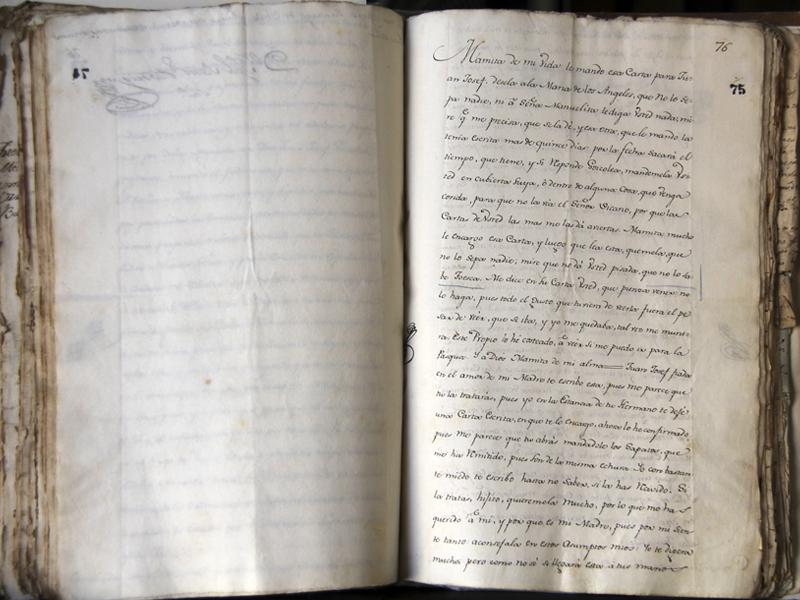 74
76
75
Mamita de mi Vida le mando esa Carta para Ju-
an Josef. desela ala Maria de los Angeles, que No lo se-
pa nadie, ni â Señâ Manuelita lediga Vsted nada; mi-
re q.e me precisa, que sela dê, yesa otra, que le mando la
tenia escrita mas de quince dias, por la fecha sacarâ el
tiempo, que tiene, y Si Responde Goicolea, mandemela Vs-
ted en cubierta Suya, ô dentro de alguna Cosa, que venga
cosida, para que no la vea el Señor Vicario, por que las
Cartas de Vsted las mas me las dâ aviertas. Mamita mucho
le encargo esa Carta, y luego que lea esta, quemela, que
no lo sepa nadie; mire que no dâ Vsted pisada, que no lo sa-
be Toesca. Me dice en su Carta Vsted, que piensa venir: no
lo haga, pues todo el Gusto que tuviera de verla fuera el pe-
sar de veer, que se iba, y yo me quedaba, tal ves me murie-
ra. Este Propio lo hê costeado, â veer si me puedo ir para la
Pasqua. Y a Dios Mamita de mi alma Juan Josef fiada
en el amor de mi Madre te escribo esta, pues me parece que
tu la tratarâs, pues yo en la Estancia de tu Hermano te dejê
una Carta Escrita, en que te lo encargo, ahora lo he confirmado
pues me parece que tu abrâs mandadole los Sapatos, que
me ha Remitido, pues son de la misma echura. Yo con bastan-
te miedo te escribo hasta no Saber, si la has Recivido. Si
la tratas, hijito, queremela mucho, por lo que me ha
querido â mi, y por que es mi Madre, pues por mi Sien-
te tanto aconsejala en estos Asumptos mios. Yo te dixera
mucho pero como no sê si llegara esta a tus manos